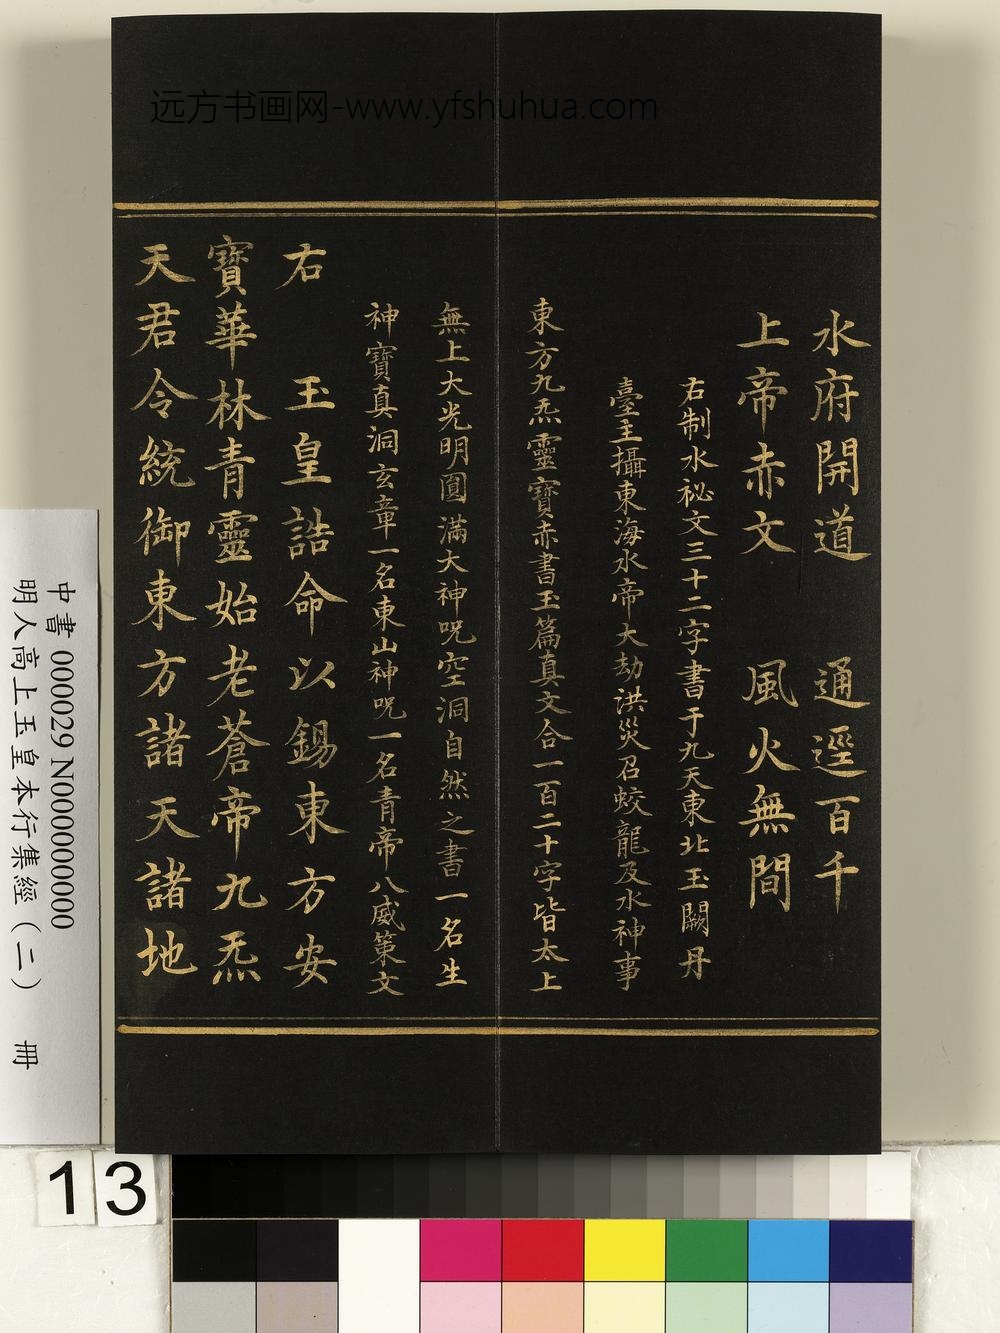 远方书画网-www.yfshuhua.com
水府開道 通逕百千
上帝赤文 風火無間
右制水祕文三十二字書于九天東北玉闕丹
臺主攝東海水帝大劫洪災召蛟龍及水神事
東方九炁靈寶赤書玉篇真文合一百二十字皆太上
無上大光明圓滿大神呪空洞自然之書一名生
神寶真洞玄章一名東山神呪一名青帝八威策文
右 玉皇誥命以錫東方安
寶華林青靈始老蒼帝九炁
天君令統御東方諸天諸地
中書 000029 N000000000
明人高上玉皇本行集經(二) 冊
13